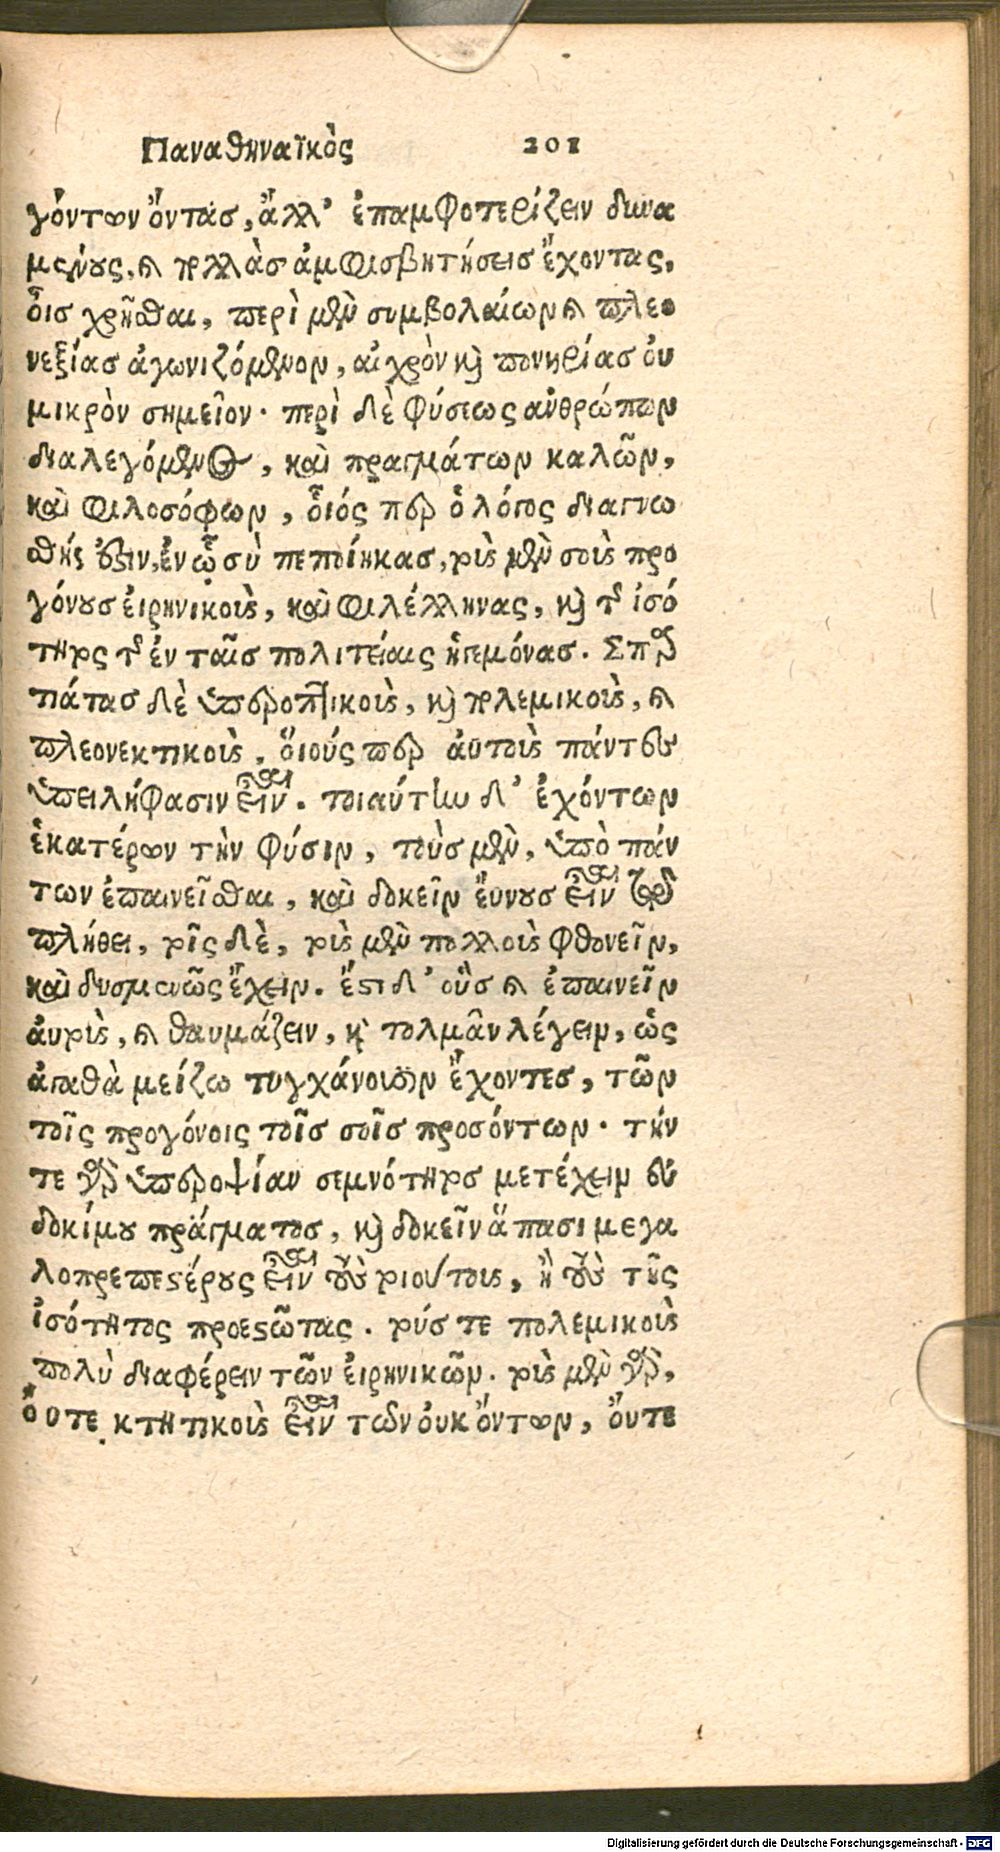 Παναθηναϊκὸς 201
γόντων ὄντας, ἀλλ' ἐπαμφοτερίζειν δυνα
μένους, καὶ πολλὰς ἀμφισβητήσεις ἔχοντας,
οἷς χρῆσθαι, περὶ μὲν συμβολαίων καὶ πλεο
νεξίας ἀγωνιζόμενον, αἰσχρὸν καὶ πονηρίας οὐ
μικρὸν σημεῖον· περὶ δὲ φύσεως ἀνθρώπων
διαλεγόμενος, καὶ πραγμάτων καλῶν,
καὶ φιλοσόφων, οἷός περ ὁ λόγος διαγνω
σθής ἐστιν, ἐν ᾧ σὺ πεποίηκας, τοὺς μὲν σοὺς προ
γόνους εἰρηνικοὺς, καὶ φιλέλληνας, καὶ τῆς ἰσό
τητος τῆς ἐν ταῖς πολιτείαις ἡγεμόνας. Σπαρ
τιάτας δὲ ὑπεροπτικοὺς, καὶ πολεμικοὺς, καὶ
πλεονεκτικοὺς, οἵους περ αὐτοὺς πάντες
ὑπειλήφασιν εἶναι. τοιαύτην δ' ἐχόντων
ἑκατέρων τὴν φύσιν, τοὺς μὲν, ὑπὸ πάν
των ἐπαινεῖσθαι, καὶ δοκεῖν εὔνους εἶναι τῷ
πλήθει, τοῖς δὲ, τοὺς μὲν πολλοὺς φθονεῖν,
καὶ δυσμενῶς ἔχειν. ἔστι δ' οὓς καὶ ἐπαινεῖν
αὐτοὺς, καὶ θαυμάζειν, καὶ τολμᾶν λέγειν, ὡς
ἀγαθὰ μείζω τυγχάνουσιν ἔχοντες, τῶν
τοῖς προγόνοις τοῖς σοῖς προσόντων· τήν
τε γὰρ ὑπεροψίαν σεμνότητος μετέχειν εὐ
δοκίμου πράγματος, καὶ δοκεῖν ἅπασι μεγα
λοπρεπεστέρους εἶναι τοὺς τοιούτους, ἢ τοὺς τῆς
ἰσότητος προεστῶτας. τούς τε πολεμικοὺς
πολὺ διαφέρειν τῶν εἰρηνικῶν. τοὺς μὲν γὰρ,
οὔτε κτητικοὺς εἶναι τῶν οὐκ ὄντων, οὔτε
Digitalisierung gefördert durch die Deutsche Forschungsgemeinschaft - DFG